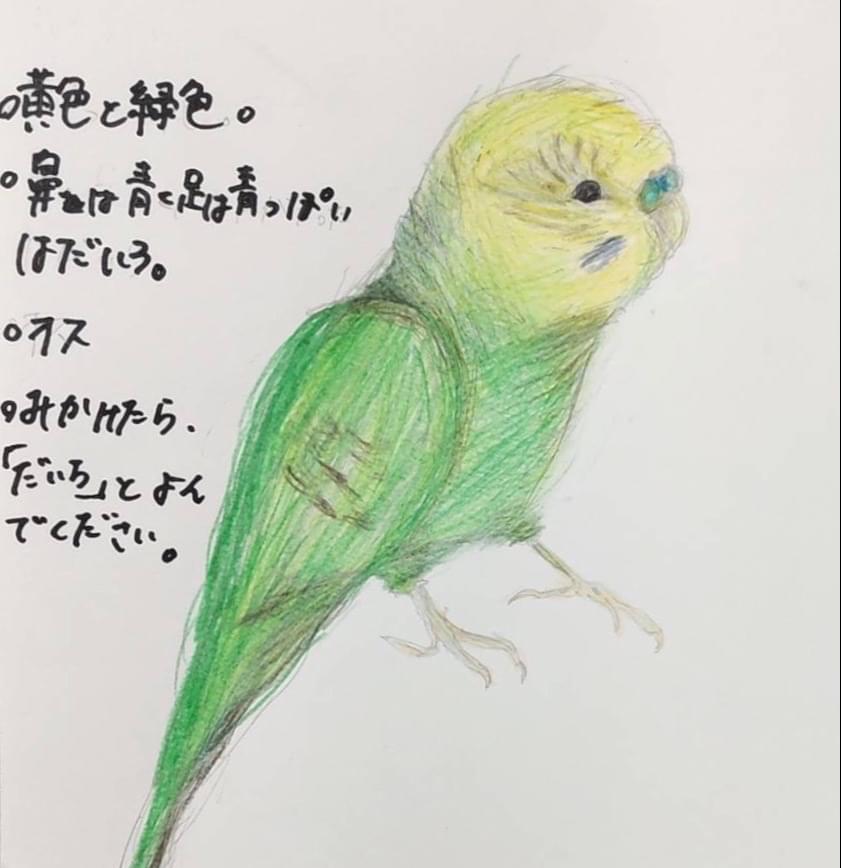 ○黄色と緑色。
○鼻は青く足は青っぽい
はだいろ。
○オス
○みかけたら、
「だいち」とよん
でください。